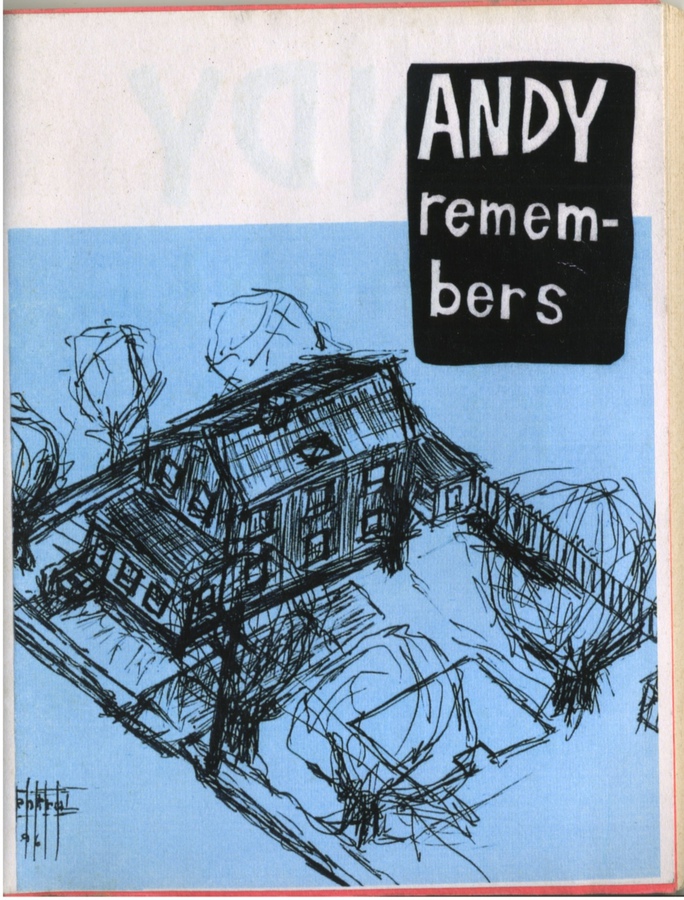 ANDY
remem-
bers